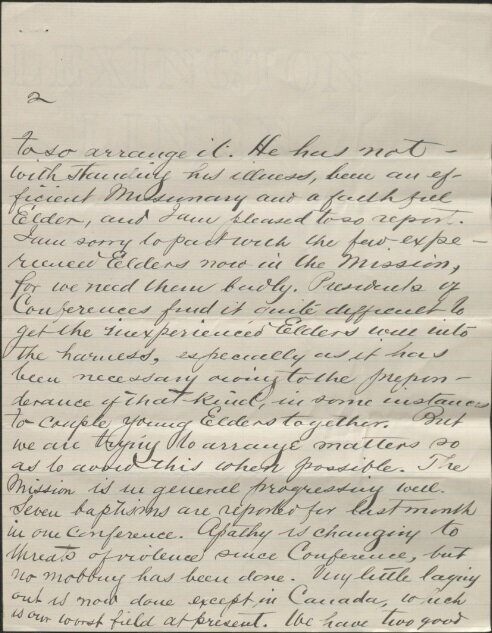 2
to so arrange it. He has not-
withstanding his illness, been an ef-
ficient Missionary and a faithful
Elder, and I am pleased to so report.
I am sorry to part with the few expe-
rienced Elders now in the Mission,
for we need them badly. Presidents of
Conferences find it quite difficult to
get the inexperienced Elders well into
the harness, especially as it has
been necessary owing to the prepon-
derance of that kind, in some instances
to couple young Elders together. But
we are trying to arrange matters so
as to avoid this when possible. The
Mission is in general progressing well.
Seven baptisms are reported for last month
in one Conference. Apathy is changing to
threats of violence since Conference, but
no mobbing has been done. Very little laying
out is now done except in Canada, which
is our worst field at present. We have two good